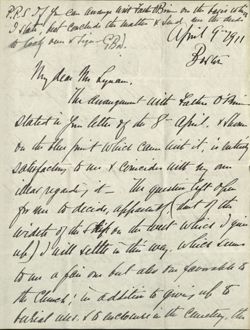 P.P.S. If you can arrange with Father O'Brien on the basis which
I state, but conclude the matter & send me the deed
to sign
April 9th 1911
My dear Mr
The arrangement with Father O'Brien
stated in your letter of the 8th April. &
on the other print which came with it, is entirely
satisfactory to me & coincides with my own
ideas regarding it — the question left open
for me to decide, apparently (that of the
width of the strip on the west which I give
up) I will settle in this way, which seems
to me a fair one but also one favorable to
the Church; in addition to giving up to
burial uses & to enclosure in the Cemetery, the